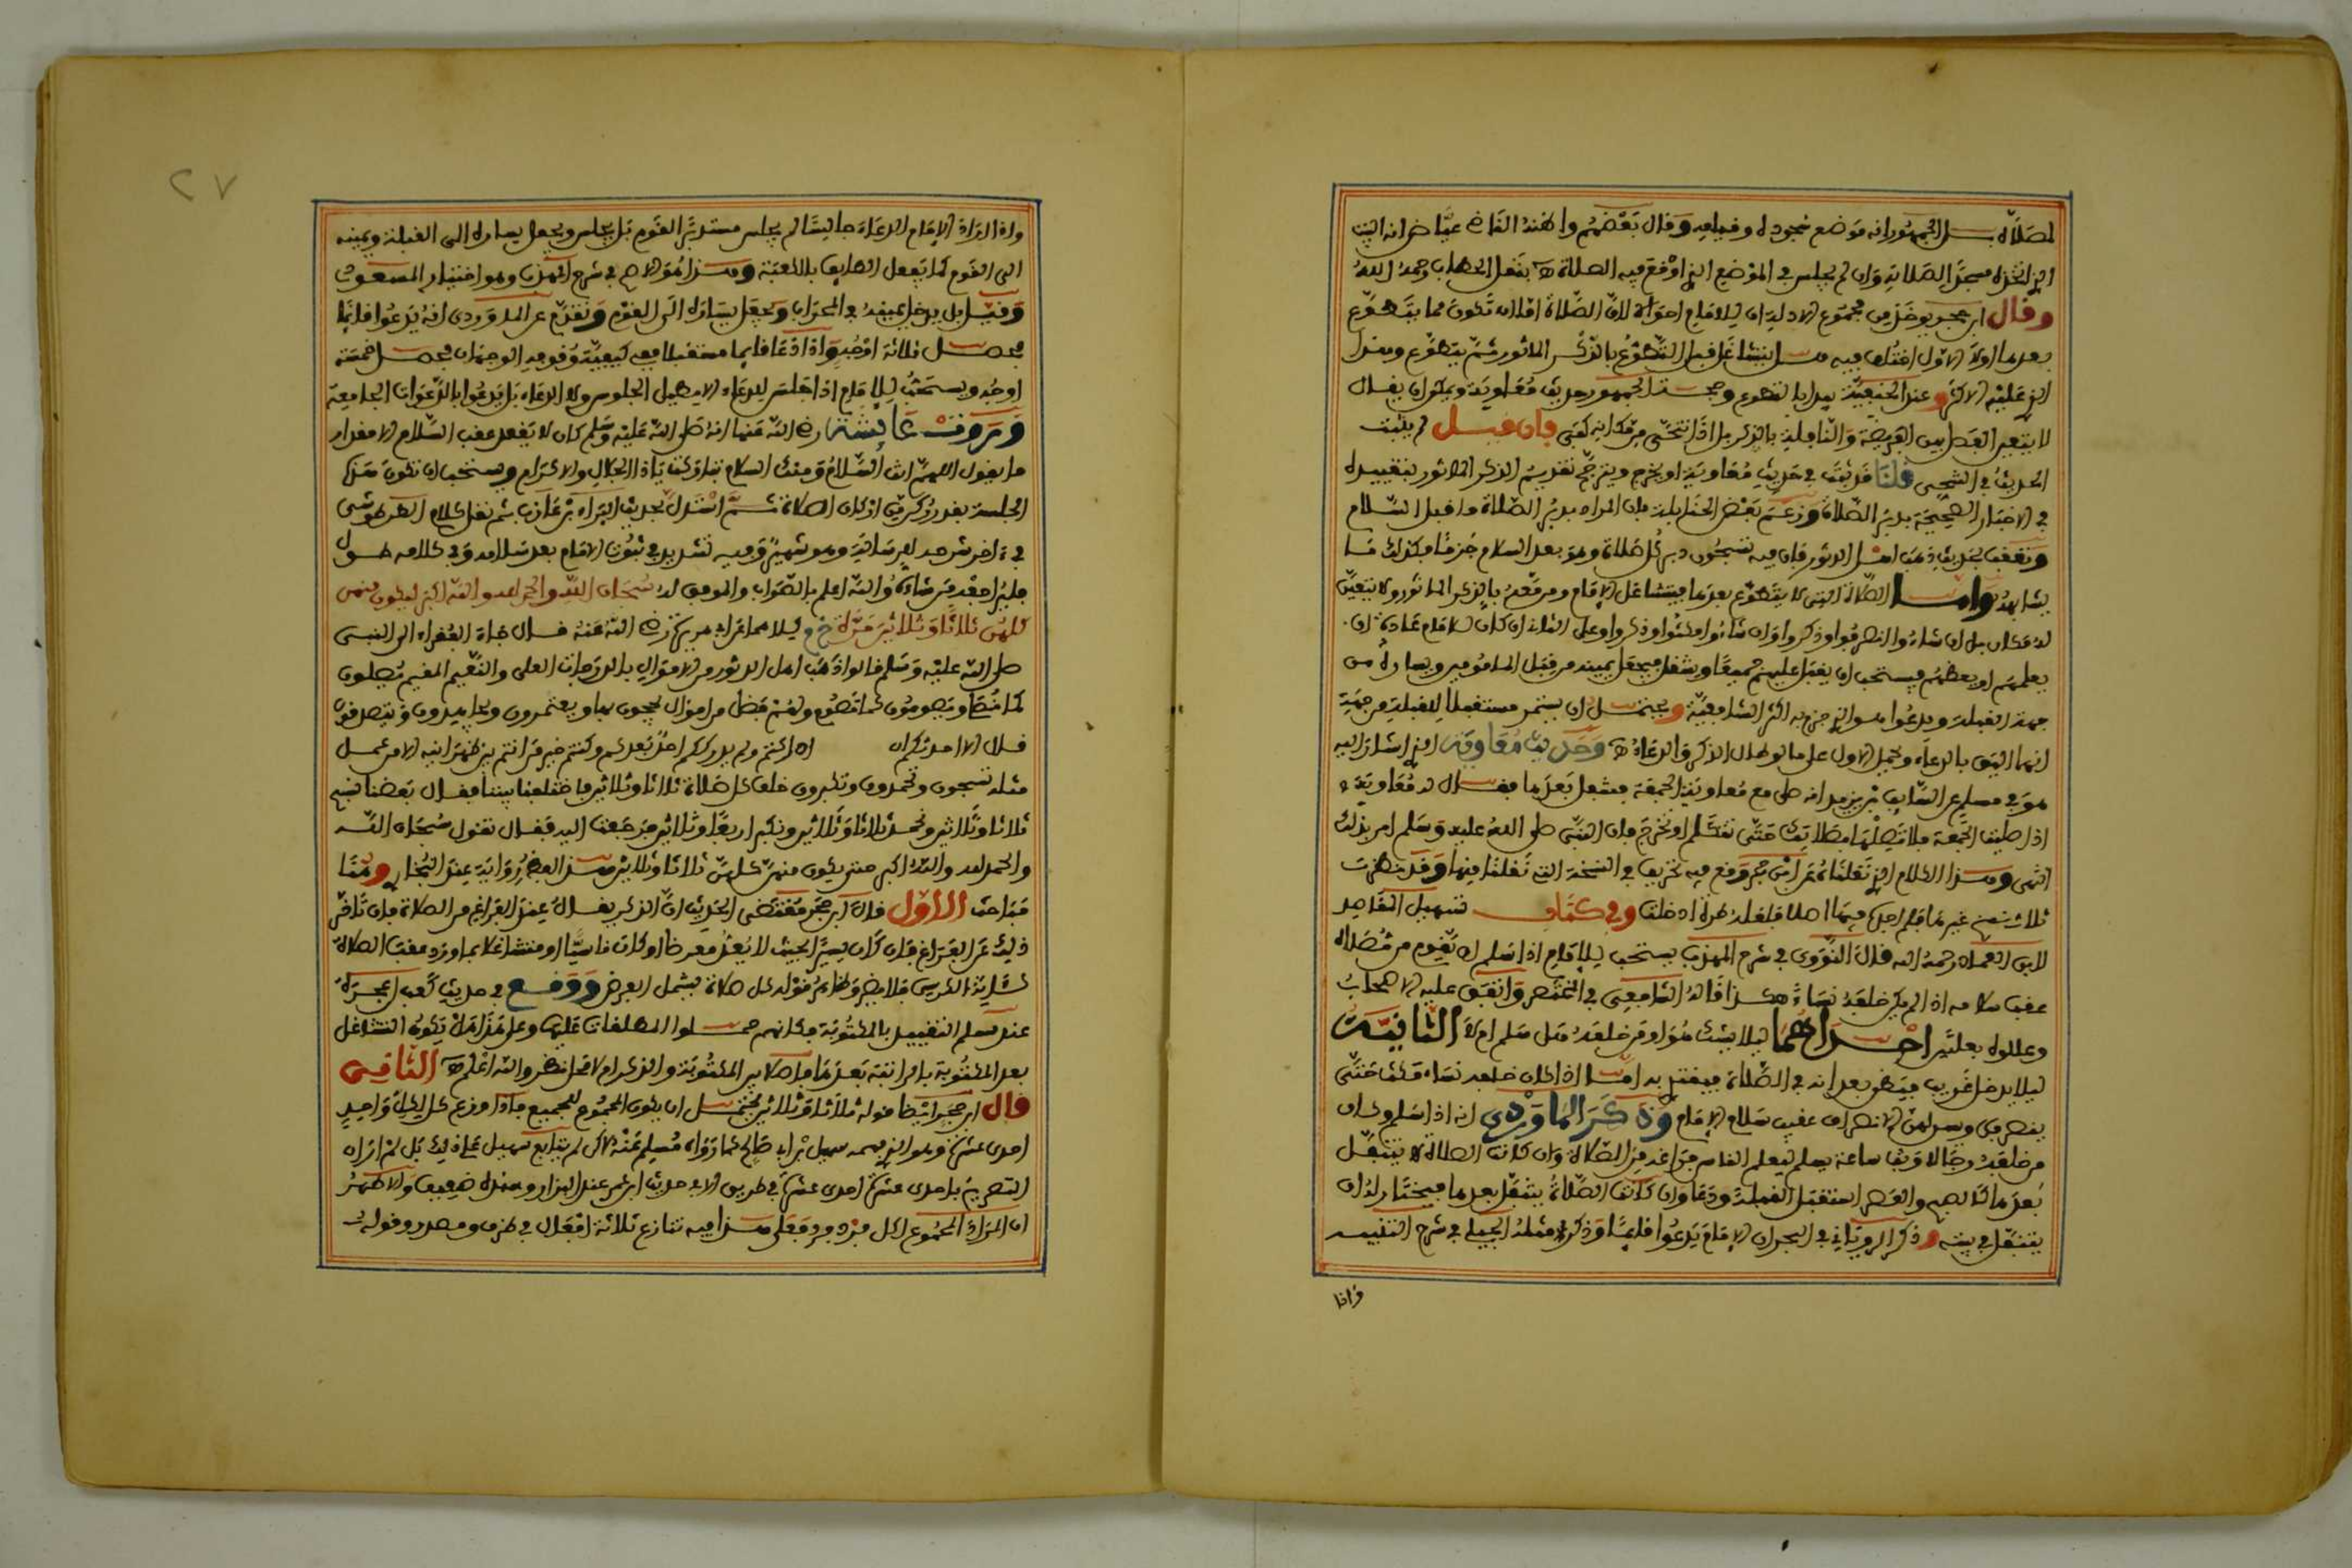 لمصلاه هل الجمهور انه موضع سجوده وقيامه وقال بعضهم واظنه القاضي عياض انه البيت
الذي اتخذه مسجدا لصلاته وان لم يجلس في الموضع الذي اوقع فيه الصلاة نقل الحطاب رحمه الله
وقال ابن حجر يوخذ من مجموع الادلة ان للامام احوالا لان الصلاة اما ان تكون مما يتطوع
بعدها اولا الاول اختلف فيه هل يتشاغل قبل التطوع بالذكر الماثور ثم يتطوع وهذا
الذي عليه الاكثر وعند الحنفية يبدا بالتطوع وحجة الجمهور حديث معاوية ويمكن ان يقال
لا يتعين الفصل بين الفريضة والنافلة بالذكر بل اذا تنحى من مكانه كفى فان قيل لم يثبت
الحديث في التنحي قلنا قد ثبت في حديث معاوية او يخرج ويترجح تقديم الذكر الماثور بتقييده
في الاخبار الصحيحة بدبر الصلاة وزعم بعض الحنابلة بان المراد بدبر الصلاة ما قبل السلام
وتعقب بحديث ذهب اهل الدثور فان فيه تسبحون دبر كل صلاة وهو بعد السلام جزما فكذلك ما
يشابهه واما الصلاة التي لا يتطوع بعدها فيتشاغل الامام ومن معه بالذكر الماثور ولا يتعين
له مكان بل ان شاءوا انصرفوا وذكروا وان شاءوا مكثوا وذكروا وعلى الثاني ان كان للامام عادة ان
يعلمهم او يعظهم فيستحب ان يقبل عليهم جميعا وينفتل فيجعل يمينه من قبل المامومين ويساره من
جهة القبلة ويدعوا هو الذي جزم به اكثر الشافعية ويحتمل ان يستمر مستقبلا للقبلة من جهة
انها اليق بالدعاء ويحمل الاول على ما لو طال الذكر والدعاء وحديث معاوية الذي اشار اليه
هو في مسلم عن السائب بن يزيد انه صلى مع معاوية الجمعة فتنفل بعدها فقال له معاوية
اذا صليت الجمعة فلا تصلها بصلاة حتى تتكلم او تخرج فان النبي صلى الله عليه وسلم امر بذلك
انتهى وهذا الكلام الذي نقلناه عن ابن حجر وقع فيه تحريف في النسخة التي نقلنا منها وقد نظرت
ثلاث نسخ غيرها فلم اجد فيها اصلا فلعله طرة ادخلت وفي كتاب تسهيل المقاصد
لابن العماد رحمه الله قال النووي في شرح المهذب يستحب للامام اذا سلم ان يقوم من مصلاه
عقب سلامه اذا لم يكن خلفه نساء هكذا قاله الشافعي في المختصر واتفق عليه الاصحاب
وعللوه بعلتين احداهما ليلا يشك هو او من خلفه هل سلم ام لا الثانية
ليلا يدخل غريب فيظن بعد انه في الصلاة فيقتدي به اما اذا كان خلفه نساء فيمكث حتى
ينصرفن ويسن لهن الانصراف عقب سلام الامام وذكر الماوردي انه اذا سلم وكان
من خلفه رجالا وثب ساعة يسلم ليعلم الناس فراغه من الصلاة وان كانت الصلاة لا يتنفل
بعدها كالصبح والعصر استقبل القبلة ودعا وان كانت الصلاة يتنفل بعدها فيختار له ان
يتنفل في بيته وذكر الروياني في البحر ان الامام يدعوا قائما وذكر مثله الجيلي في شرح التنبيه
واذا
٢٧
واذا اراد الامام الدعاء جالسا لم يجلس مستدبر القوم بل يجلس ويجعل يساره الى القبلة ويمينه
الى القوم كما يفعل الطايف بالكعبة وهذا هو الاصح في شرح المهذب وهو اختيار المسعودي
وقيل بل يدخل يمينه في المحراب ويجعل يساره الى القوم وتقدم عن الماوردي انه يدعوا قائما
فحصل ثلاثة اوجه واذا دعا قايما مستقبلا ففي كيفية وقوفه الوجهان فحصل خمسة
اوجه ويستحب للامام اذا جلس للدعاء الا يطيل الجلوس ولا الدعاء بل يدعوا بالدعوات الجامعة
وروت عايشة رضي الله عنها انه صلى الله عليه وسلم كان لا يقعد عقب السلام الا مقدار
ما يقول اللهم انت السلام ومنك السلام تباركت يا ذا الجلال والاكرام ويستحب ان تكون هذه
الجلسة بقدر ركعتين اذ كان الصلاة ثم استدل بحديث البراء بن عازب ثم نقل كلام الطرطوشي
في اخر شرحه لرسالته وهو شهير وفيه تشديد في ثبوت الامام بعد سلامه وفي كلامه طول
فليراجعه من شاءه والله اعلم بالصواب والموفق له سبحان الله والحمد لله والله اكبر ليكون منهن
كلهن ثلاثا وثلاثين مرة خ م ليلا مما عن ابي هريرة رضي الله عنه قال جاء الفقراء الى النبي
صلى الله عليه وسلم فقالوا ذهب اهل الدثور من الاموال بالدرجات العلى والنعيم المقيم يصلون
كما نصلي ويصومون كما نصوم ولهم فضل من اموال يحجون بها ويعتمرون ويجاهدون ويتصدقون
قال الا احدثكم ان اخذتم ادركتم ولم يدرككم احد بعدكم وكنتم خير من انتم بين ظهرانيه الا من عمل
مثله تسبحون وتحمدون وتكبرون خلف كل صلاة ثلاثا وثلاثين فاختلفنا بيننا فقال بعضنا نسبح
ثلاثا وثلاثين ونحمد ثلاثا وثلاثين ونكبر اربعا وثلاثين فرجعت اليه فقال تقول سبحان الله
والحمد لله والله اكبر حتى يكون منهن كلهن ثلاثا وثلاثين هذا رواية عند البخاري وهنا
مباحث الاول قال ابن حجر مقتضى الحديث ان الذكر يقال عند الفراغ من الصلاة فان تاخر
ذلك عن الفراغ فان كان يسيرا بحيث لا يعد معرضا او كان ناسيا او متشاغلا بما ورد عقب الصلاة
كاية الكرسي فلا يضر وظاهر قوله كل صلاة يشمل الفرض ووقع في حديث كعب بن عجرة
عند مسلم التقييد بالمكتوبة فكانهم حملوا المطلقات عليها وعلى هذا هل يكون التشاغل
بعد المكتوبة بالراتبة بعدها فاصلا بين المكتوبة والذكر ام لا محل نظر والله اعلم الثاني
قال ابن حجر ايضا قوله ثلاثا وثلاثين يحتمل ان يكون المجموع للجميع فاذا وزع كان لكل واحد
احدى عشرة وهو الذي فهمه سهيل بن ابي صالح كما رواه مسلم عنه لكن لم يتابع سهيل على ذلك بل لم ار
التصريح باحدى عشرة احدى عشرة في طريق الا في حديث ابن عمر عند البزار واسناده ضعيف والاظهر
ان المراد المجموع لكل فرد فرد فعلى هذا فيه تنازع ثلاثة افعال في ظرف ومصدر وقوله